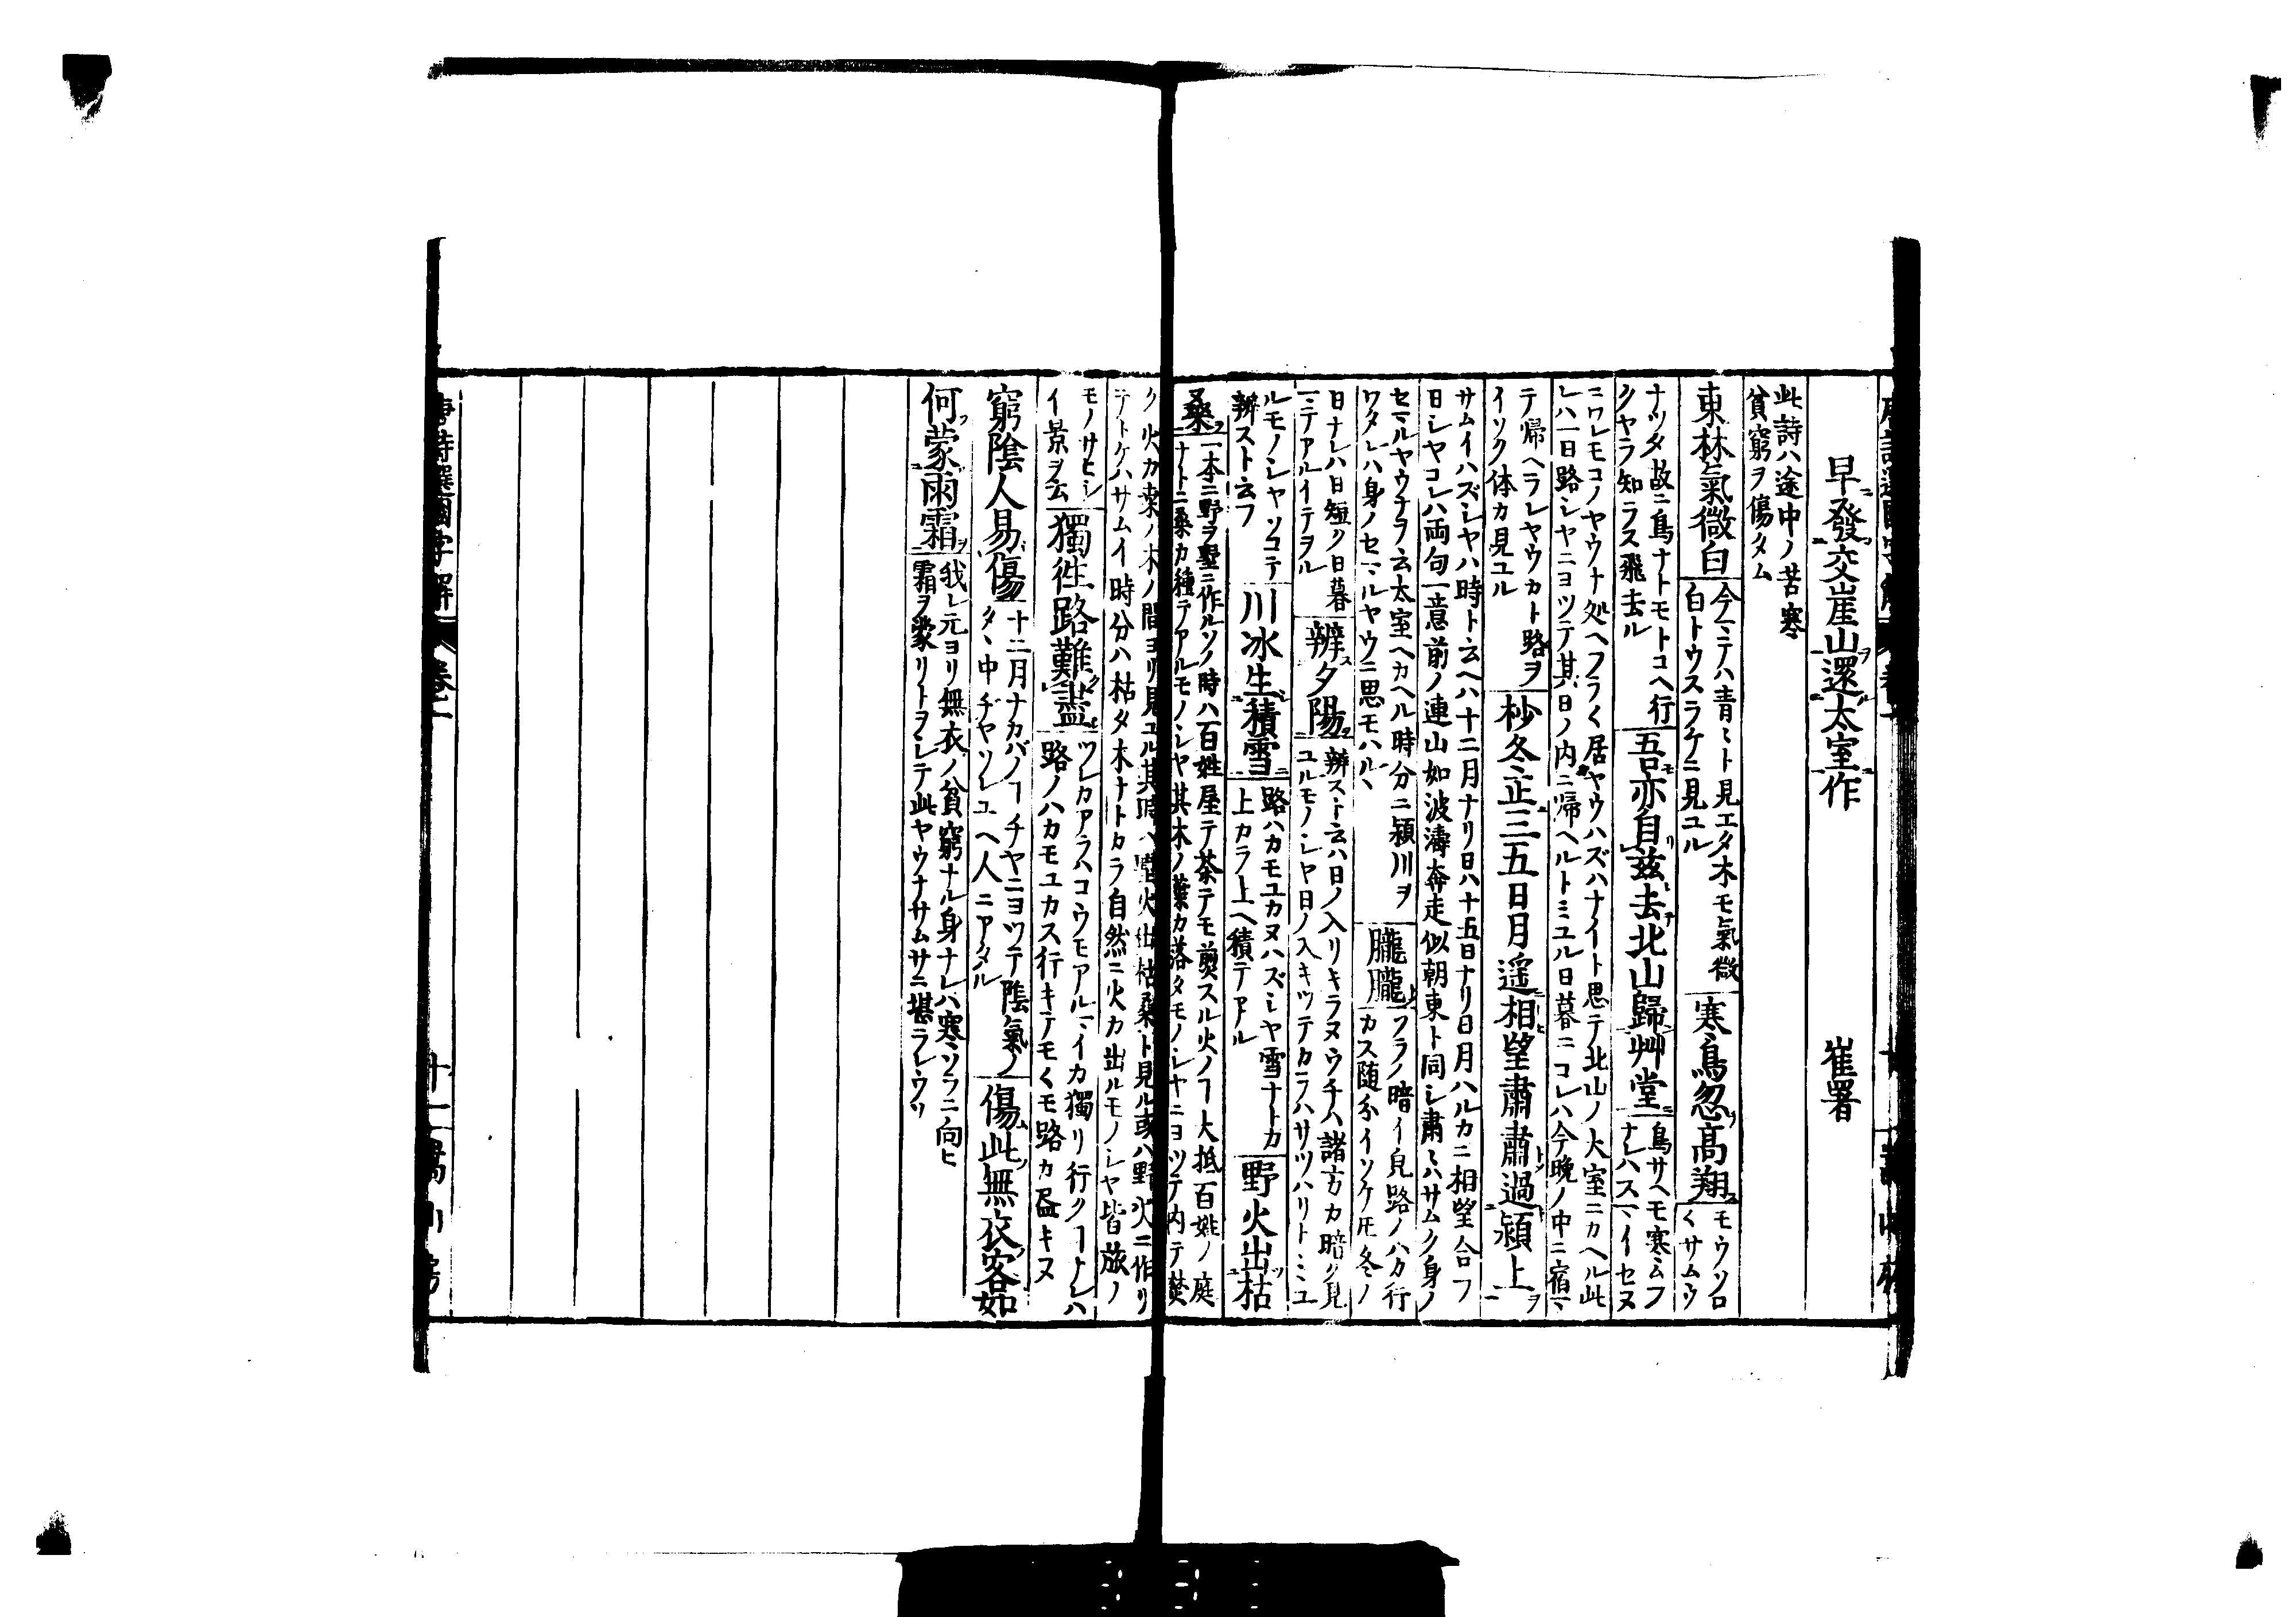 早發交崖山還太室作　崔署
此詩ハ途中ノ苦寒
貧窮ヲ傷タム
東林氣微白
今ニテハ青〻ト見エタ木モ氣微
白トウスラケニ見ユル
寒鳥忽高翔
モウソロ
〱サムウ
ナツタ故ニ鳥ナトモトコヘ行
クヤラ知ラス飛去ル
吾亦自茲去北山歸艸堂
鳥サヘモ寒ムフ
ナレハスマイセヌ
ニワレモコノヤウナ処ヘフラ〱居ヤウハズハナイト思テ北山ノ大室ニカヘル此
レハ一日路シヤニヨツテ其日ノ内ニ帰ヘルトミユル日暮ニコレハ今晩ノ中ニ宿マ
テ帰ヘラレヤウカト路ヲ
イソク体カ見ユル
杪冬正三五日月遥相望肅肅過潁上
サムイハズシヤハ時ト云ヘハ十二月ナリ日ハ十五日ナリ日月ハルカニ相望合フ
日シヤコレハ両句一意前ノ連山如波濤奔走似朝東ト同シ肅〻ハサムク身ノ
セマルヤウナヲ云太室ヘカヘル時分ニ潁川ヲ
ワタレハ身ノセマルヤウニ思モハルヽ
朧朧
フラノ暗イ皃路ノハカ行
カス随分イソケ𪜈冬ノ
日ナレハ日短ク日暮
ニテアルイテヲル
辨夕陽
辨スト云ハ日ノ入リキラヌウチハ諸方カ暗ク見
ユルモノシヤ日ノ入キツテカラハサツハリトミユ
ルモノシヤソコテ
辨スト云フ
川冰生積雪
路ハカモユカヌハズシヤ雪ナトカ
上カラ上ヘ積テアル
野火出枯
桑
一本ニ野ヲ墅ニ作ルソノ時ハ百姓屋テ茶テモ煎スル火ノヿ大抵百姓ノ庭
ナトニ桑カ種テアルモノシヤ其木ノ葉カ落タモノシヤニヨツテ内テ焚
ク火カ桑ノ木ノ間ヨリ見ユル其時ハ墅火出枯桑ト見ル或ハ野火ニ作リ
テトケハサムイ時分ハ枯タ木ナトカラ自然ニ火カ出ルモノシヤ皆旅ノ
モノサヒシ
イ景ヲ云
獨徃路難盡
ツレカアラハコウモアルマイカ獨リ行クヿナレハ
路ノハカモユカス行キテモ〱モ路カ尽キヌ
窮陰人易傷
十二月ナカバノヿチヤニヨツテ陰氣ノ
タヽ中ヂヤソレユヘ人ニアタル
傷此無衣客如
何蒙雨霜
我レ元ヨリ無衣ノ貧窮ナル身ナレハ寒ソラニ向ヒ
霜ヲ蒙リトヲシテ此ヤウナサムサニ堪ラレウソ
唐詩選國字解　卷一　十一　嵩山房